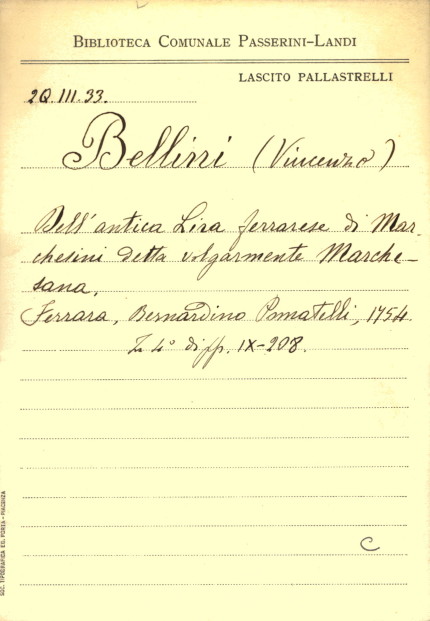 BIBLIOTECA COMUNALE PASSERINI-LANDI
LASCITO PALLASTRELLI
2Q.III.33.
Bellini (Vincenzo)
Dell' antica Lira ferrarese di Mar-
chesini detta volgarmente Marche-
sana.
Ferrara, Bernardino Pomatelli, 1754
4° di pp. IX-208.
C
SOC. TIPOGRAFICA ED. POREA - PIACENZA